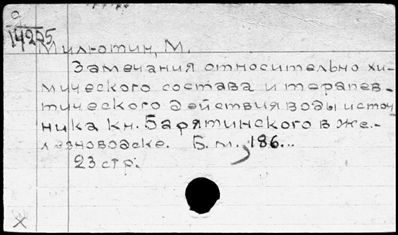 9
14225
Милютин, М.
Замечания относительно хи-
мического состава и терапев-
тического действия воды источ
ника кн. Барятинского в Же-
лезноводске. Б.м., 186...
23 стр.
X